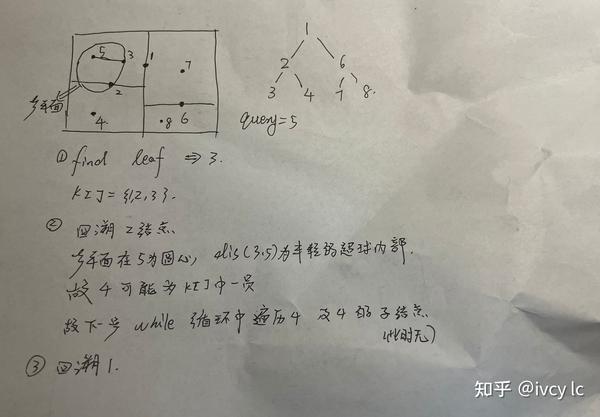 5 3 1
7
2
多平面
4
8 6
1
2 6
3 4 7 8.
query=5
① find leaf ⇒ 3.
K[]={2,3}.
② 回溯2结点
多平面在5为圆心, dis(3,5)为半径的超球内部.
故4可能为K[]中一员
故下一步while循环中遍历4及4的子结点
(此时无)
③ 回溯1.
知乎 @ivcy lc